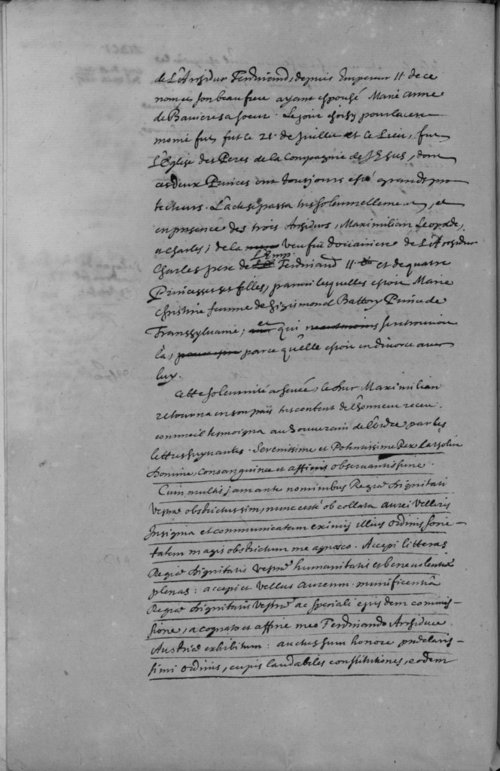 de L'Arsiduc Ferdinand, depuis Empereur II de ce
nom et son beau frere ayant espousé Marie Anne
de Baviere sa soeur. Le jour choisy pour la cere
monie fut fut le 21e de Juillet et le Lieu, fut
L'Eglise des Peres de la Compagnie de Jesus, dont
ces deux Princes ont tousjours esté grands pro
tecteurs. L'acte se passa tres solemnellement, et
en presence des trois Arsiducs, Maximilian, Leopolde,
et Charles; de la veufue douairiere de L'Arsiduc
Charles pere de L'Emp. Ferdinand II et de quatre
Princesses ses filles, parmi lesquelles estoit Marie
Christine femme de Sigismond Battory Prince de
Transsylvanie, et qui se retrouvoit
là, parce qu'elle estoit en divorce avec
luy.
Cette solemnité achevée, le Duc Maximilian
retourna en son païs tres content de l'honneur receu,
comme il tesmoigna au Souverain de l'Ordre, par les
lettres suyvantes. Serenissime et Potentissime Rex Catholice
Domine, Consanguinee et affinis observantissime.
Cum multis jam ante nominibus Regiæ Dignitati
Vestræ obstrictus sim, nunc certè ob collata aurei Velleris
Insignia et communicatam eximij illius Ordinis socie-
tatem magis obstrictum me agnosco. Accepi litteras
Regiæ Dignitatis Vestræ humanitatis et benevolentiæ
plenas: accepi et Vellus Aureum munificentiâ
Regiæ Dignitatis Vestræ ac speciali ejusdem commis-
sione, a cognato et affine meo Ferdinando Arsiduce
Austriæ exhibitum: auctus sum honore præclaris-
simi ordinis, cujus laudabiles constitutiones, eodem